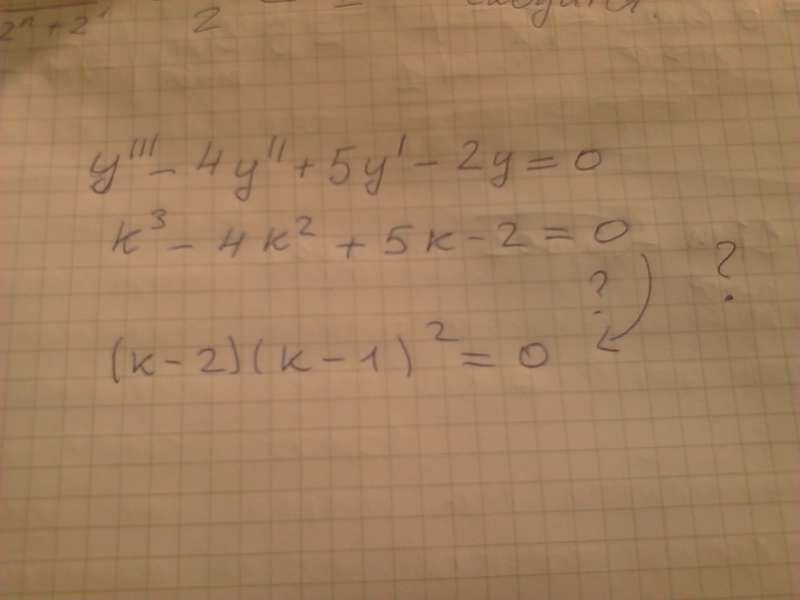 2ⁿ+2 2
y''' - 4y'' + 5y' - 2y = 0
k³ - 4k² + 5k - 2 = 0
? ?
(k - 2)(k - 1)² = 0